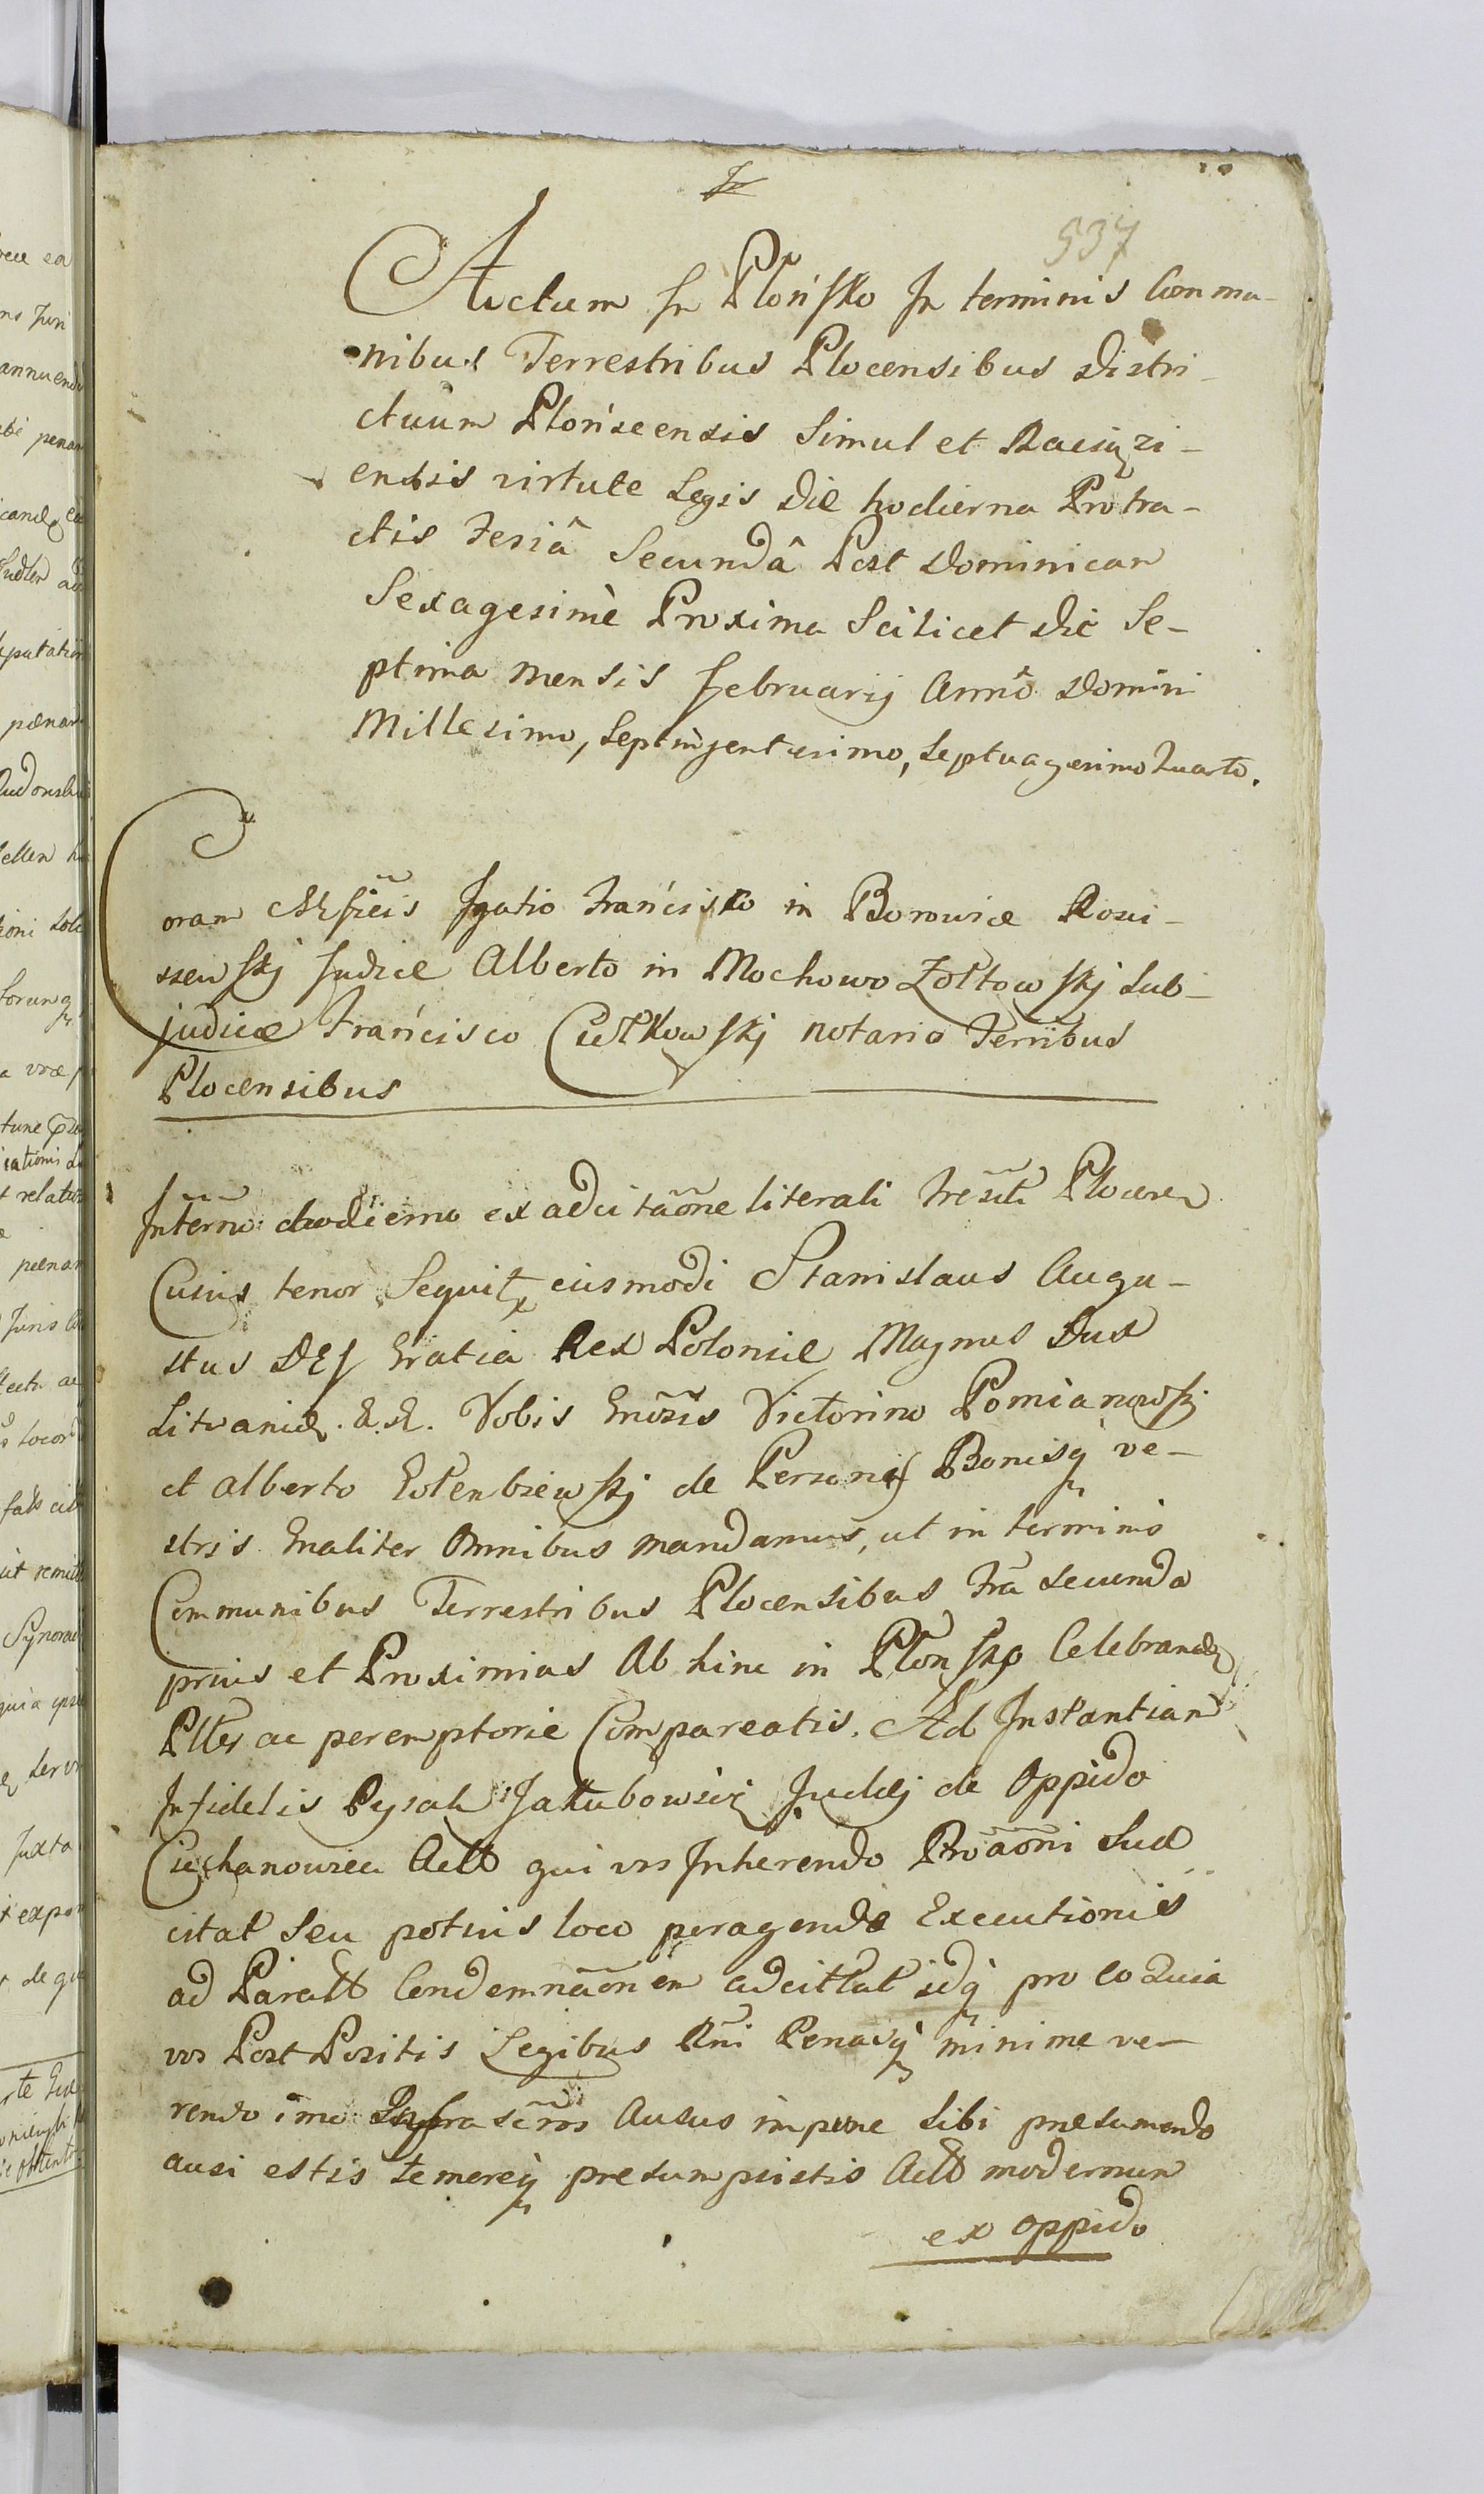 537
Actum In Płońsko In terminis Commu-
nibus Terrestribus Plocensibus Distri-
ctuum Plońscensis Simul et Raciązi-
ensis virtute Legis Die hodierna Protra-
ctis Feriâ Secundâ Post Dominicam
Sexagesimè Proxima Scilicet die Se-
ptima mensis Februarij Annô Domini
Millesimo, Septingentesimo, Septuagesimo Quarto.
Coram Mgficis Igatio Francisko in Borowice Rosci-
szewskj Judice Alberto in Mochowo Zołtowskj Sub-
judice Francisco Ciołkowskj notario Terribus
Plocensibus
In termo hodierno ex adcitaõne literali Plocen
Cuius tenor Sequit eiusmodi Stanislaus Augu-
stus DEJ Gratia Rex Polonie Magnus Dux
Lituanie. &. &. Vobis Gnosis Victorino Pomianowskj
et Alberto Gołembiewskj de Personis Bonisq ve-
stris Gnaliter Omnibus mandamus, ut in terminis
Communibus Terrestribus Plocensibus Fra secunda
prius et Proximius Ab hinc in Płonsko Celebrand
Plter ac peremptorie Compareatis. Ad Instantiam
Infidelis Pysach Jakubowicz Judej de Oppido
Ciechanowiec Actt qui vos Inherendo Proaoni Sue
citat Seu potius loco peragende Executionis
ad Paratt Condemnãonem adcittat idq pro eo Quia
vos Post Positis Legibus Rni Penasq minime ve-
rendo imo Infra scros Ausus impune Sibi presumendo
ausi estis temereq presumpsistis Actt modernum
ex oppido